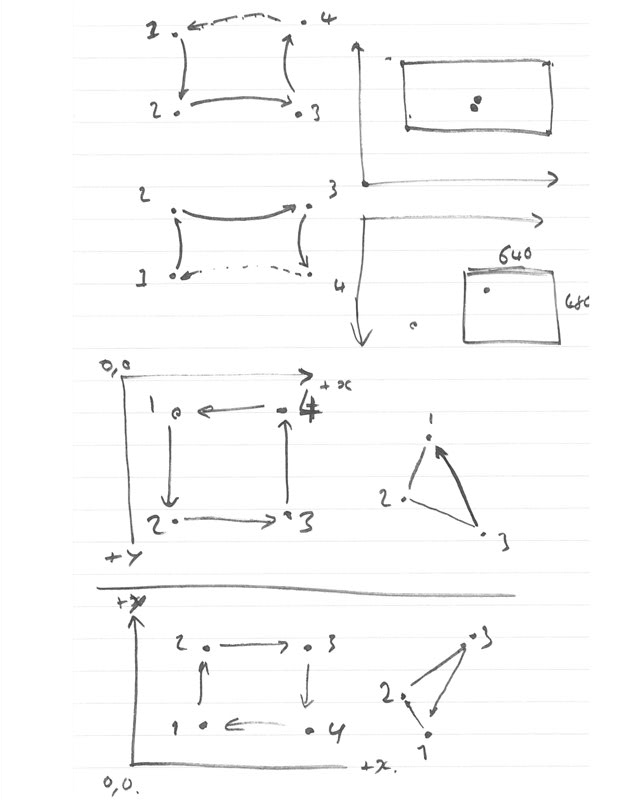 1 4
2 3
2 3
1 4
640
0,0
+x
1 4
2 3
+y
1
2
3
2 3
1 4
0,0.
+x.
3
2
1